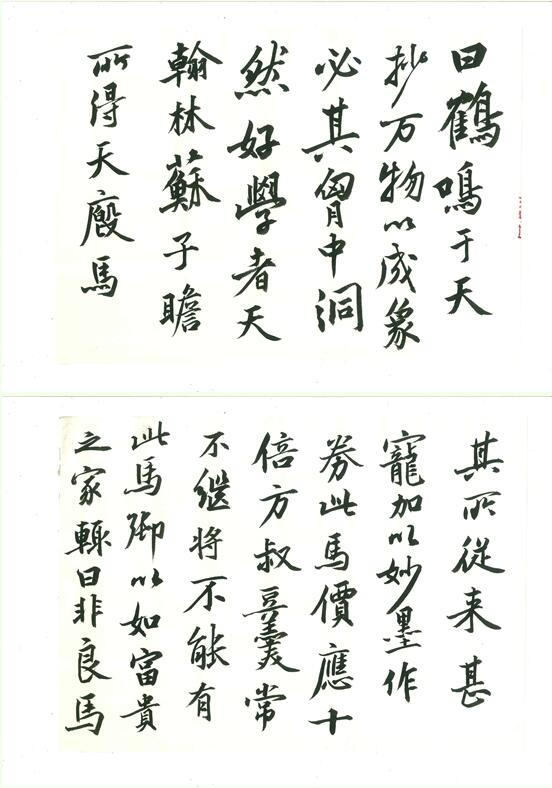 曰鶴鳴于天
抄万物以成象
必其胷中洞
然好學者天
翰林蘇子瞻
所得天廄馬
其所從来甚
寵加以妙墨作
券此馬價應十
倍方叔豆羹常
不继将不能有
此馬御以如富貴
之家輙曰非良馬